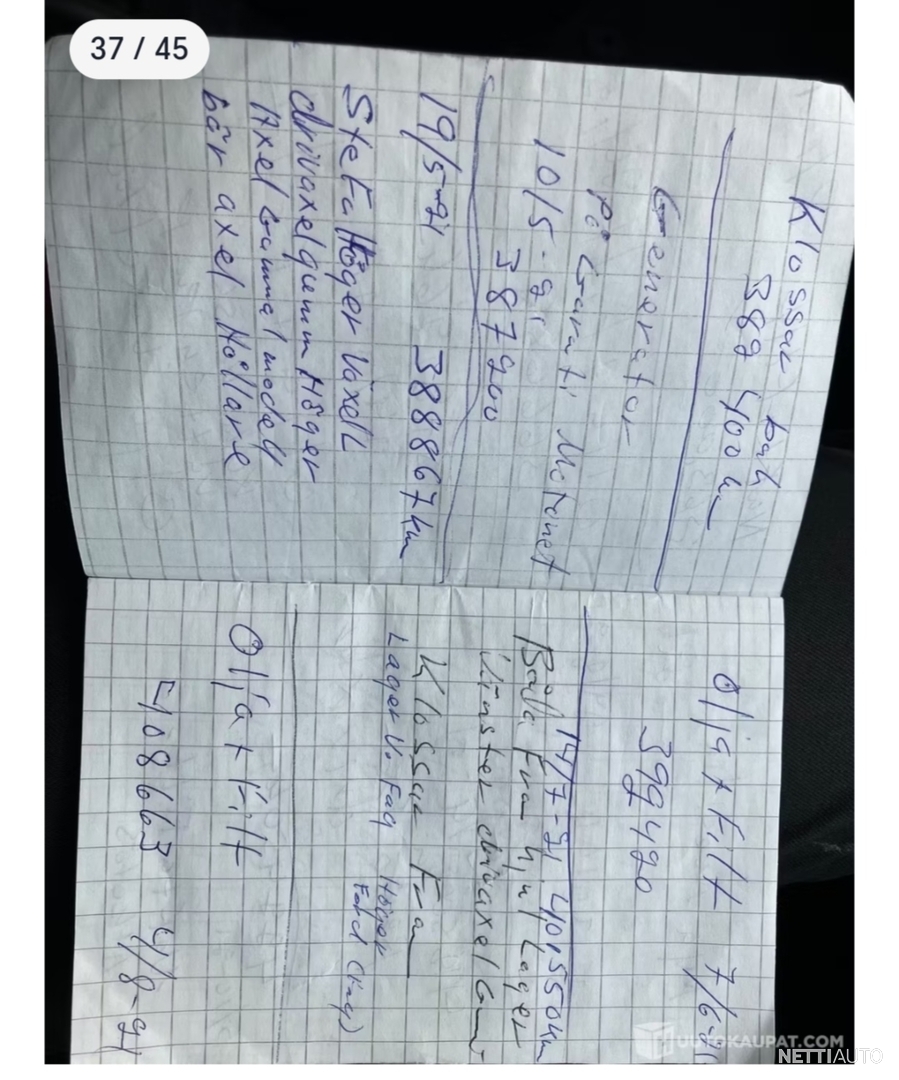 37 / 45
Klossar bak
389 400 km
Generator
på Garanti Motonet
10/5-21
387200
19/5-21 388867 km
Stefa Höger Växell
drivaxelgummi Höger
Axel Gammal modell
bär axel Hållare
Olja + Filt 7/6-21
399420
14/7-21 401550 km
Båda Fram hjul Lager
Vänster drivaxel Gum
Klossar Fram
Lager V. Fag Höger
Ford (king)
Olja + Filt
408663 4/8-21
UUTOKAUPAT.COM
NETTIAUTO